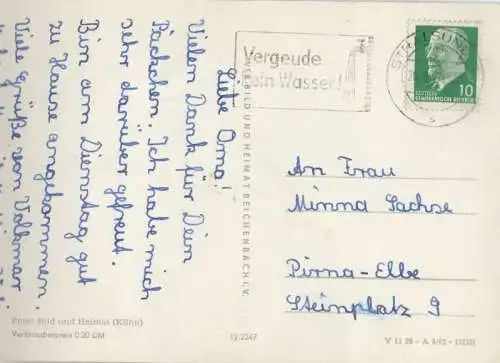 Liebe Oma!
Vielen Dank für Dein
Päckchen. Ich habe mich
sehr darüber gefreut.
Bin am Dienstag gut
zu Hause angekommen.
Viele Grüße von Volkmar
Vergeude
kein Wasser!
STRALSUND
s
10
DEUTSCHE
DEMOKRATISCHE REPUBLIK
An Frau
Minna Sachse
Pirna-Elbe
Steinplatz 9
BILD UND HEIMAT REICHENBACH I. V.
Foto: Bild und Heimat (Kühn)
Verbraucherpreis 0,20 DM
12/2247
V 11 28 - A 1/62 - DDR